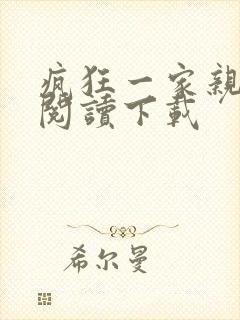 疯狂一家親
閱讀下載
希尔曼